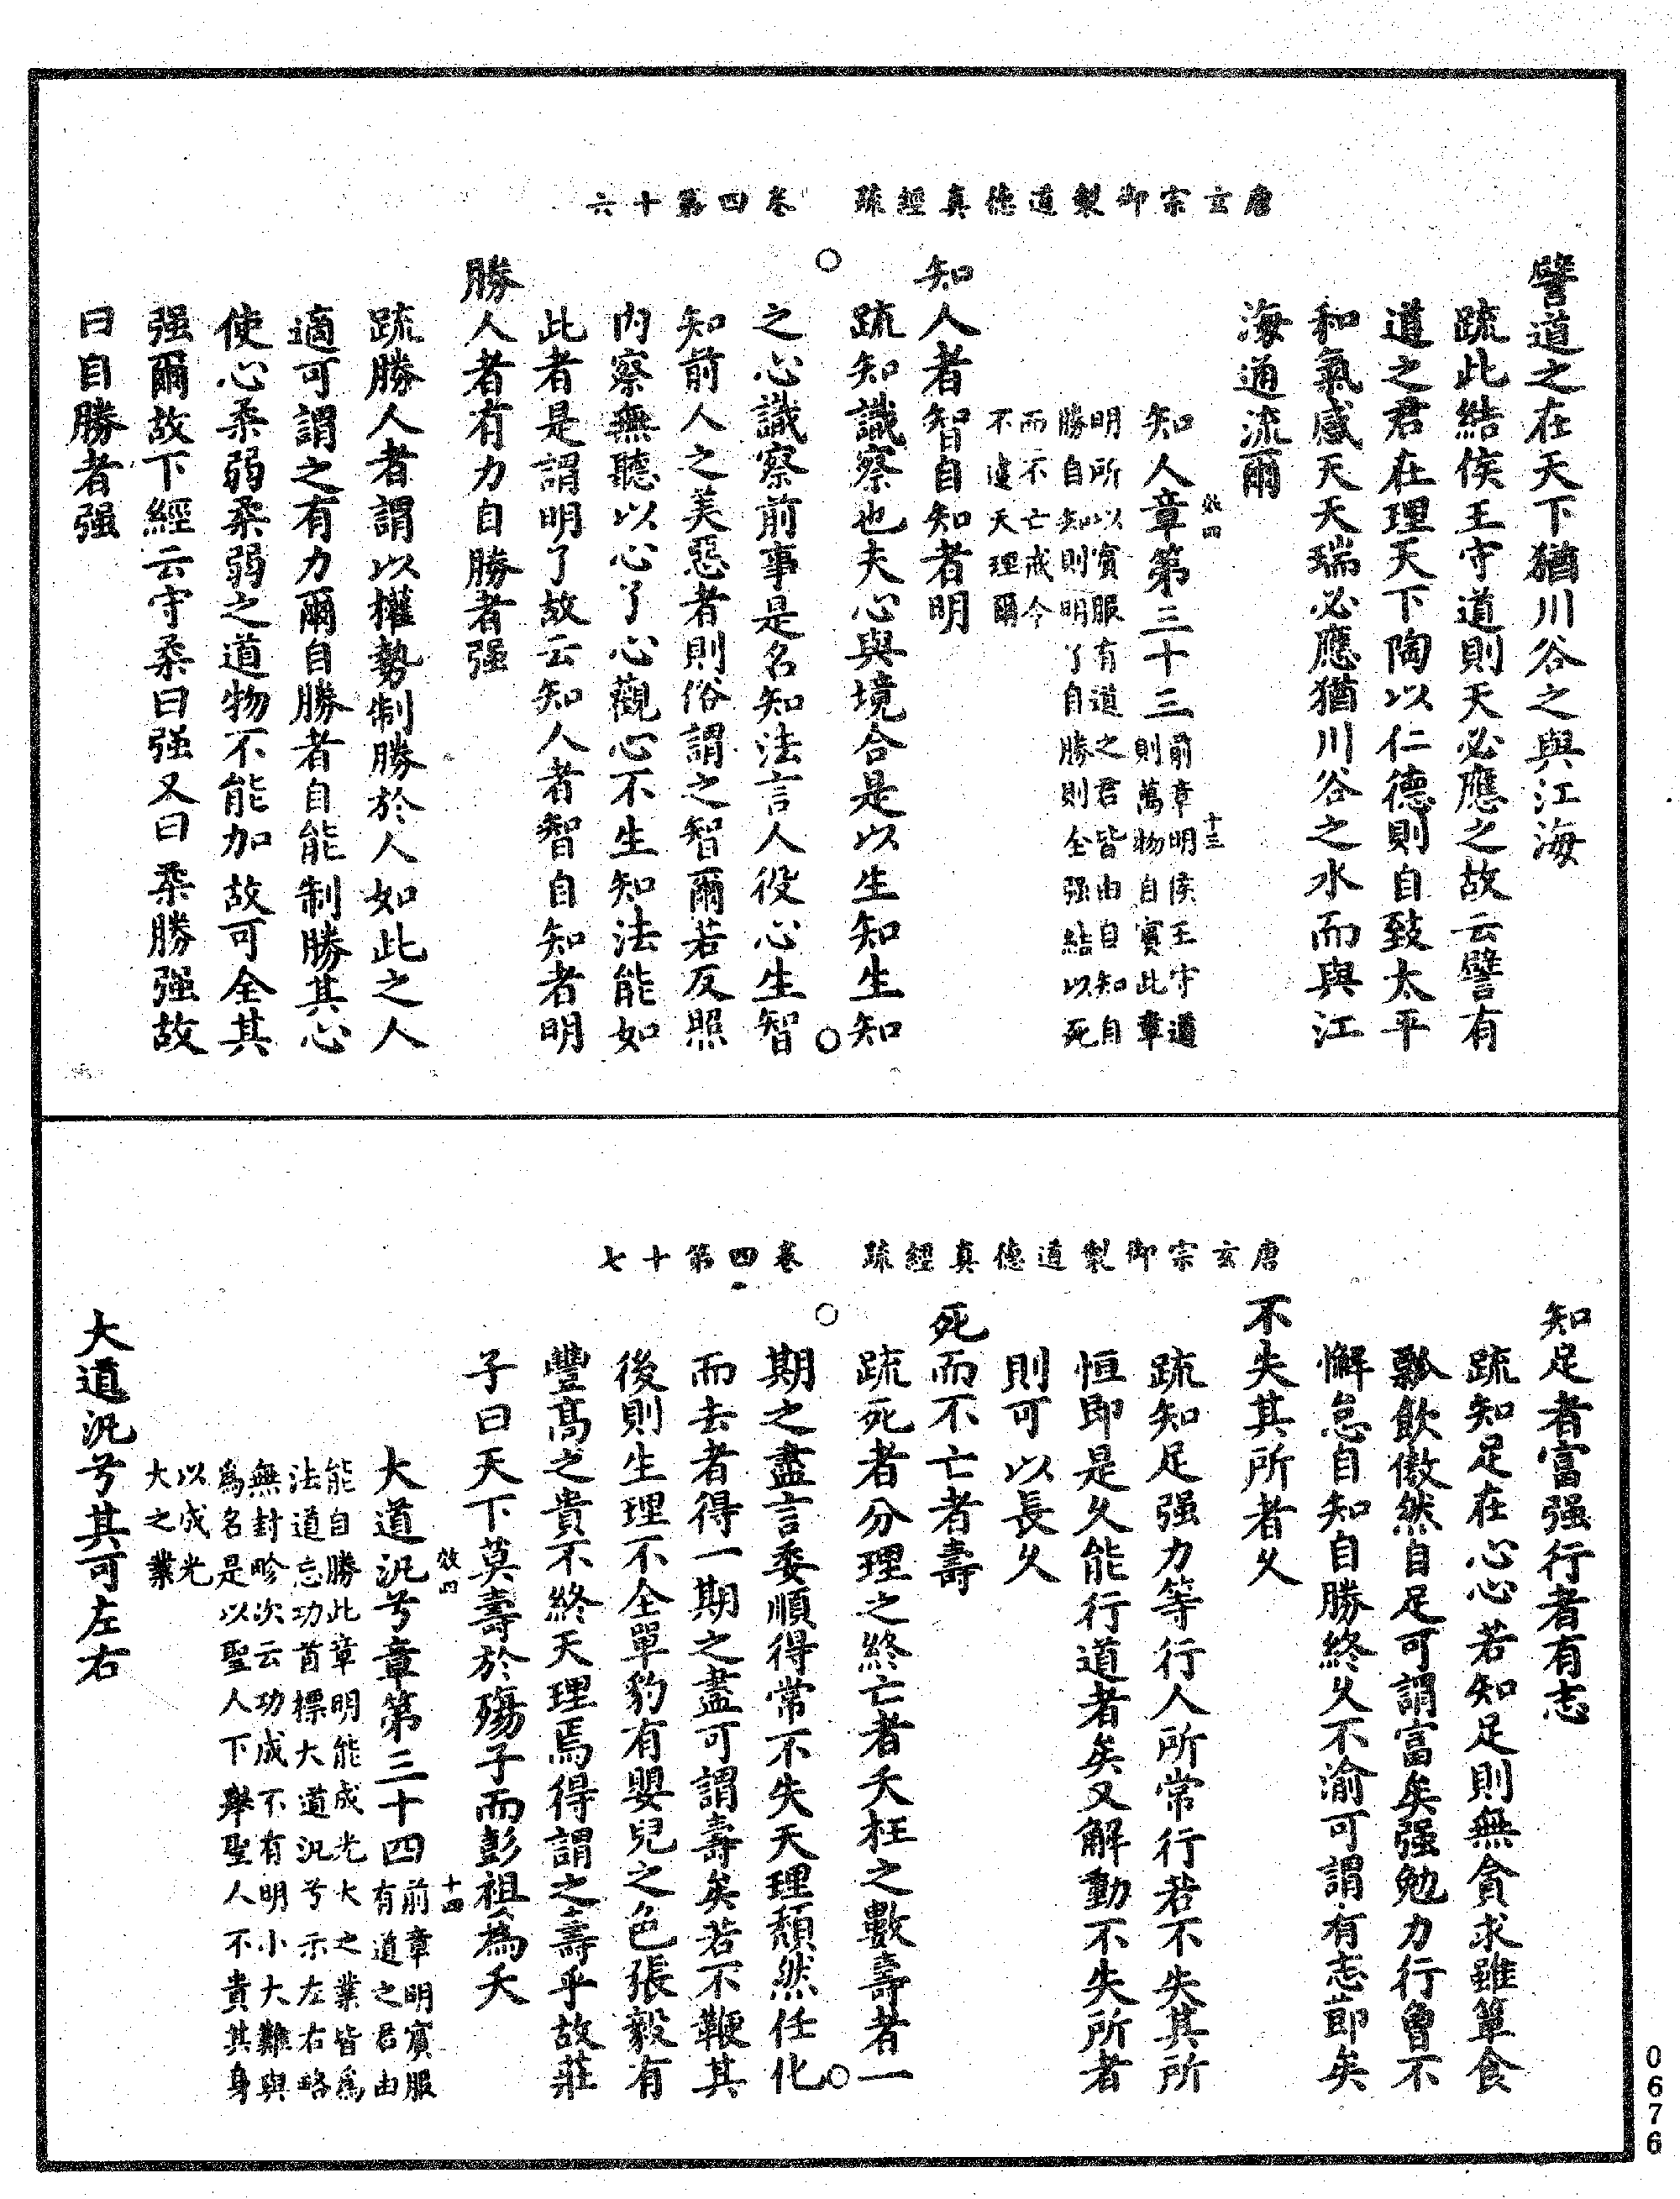 唐玄宗御製道德真經疏 卷四第十六
譬道之在天下猶川谷之與江海
疏此結侯王守道則天必應之故云譬有
道之君在理天下陶以仁德則自致太平
和氣感天天瑞必應猶川谷之水而與江
海通流爾
效四 十三
知人章第三十三前章明侯王守道
則萬物自賓此章
明所以賓服有道之君皆由自知自
勝自知則明了自勝則全强結以死
而不亡戒令
不違天理爾
知人者智自知者明
疏知識察也夫心與境合是以生知生知
之心識察前事是名知法言人役心生智
知前人之美惡者則俗謂之智爾若反照
内察無聽以心了心觀心不生知法能如
此者是謂明了故云知人者智自知者明
勝人者有力自勝者强
疏勝人者謂以權勢制勝於人如此之人
適可謂之有力爾自勝者自能制勝其心
使心柔弱柔弱之道物不能加故可全其
强爾故下經云守柔曰强又曰柔勝强故
曰自勝者强
唐玄宗御製道德真經疏 卷四第十七
知足者富强行者有志
疏知足在心心若知足則無貪求雖簞食
瓢飲傲然自足可謂富矣强勉力行曾不
懈怠自知自勝終久不渝可謂有志節矣
不失其所者久
疏知足强力等行人所常行若不失其所
恒即是久能行道者矣又解動不失所者
則可以長久
死而不亡者壽
疏死者分理之終亡者夭枉之數壽者一
期之盡言委順得常不失天理頹然任化
而去者得一期之盡可謂壽矣若不鞭其
後則生理不全單豹有嬰兒之色張毅有
豐高之貴不終天理焉得謂之壽乎故莊
子曰天下莫壽於殤子而彭祖為夭
效四 十四
大道汎兮章第三十四前章明賓服
有道之君由
能自勝此章明能成光大之業皆爲
法道忘功首標大道汎兮示左右略
無封畛次云功成不有明小大難與
爲名是以聖人下舉聖人不貴其身
以成光
大之業
大道汎兮其可左右
0676